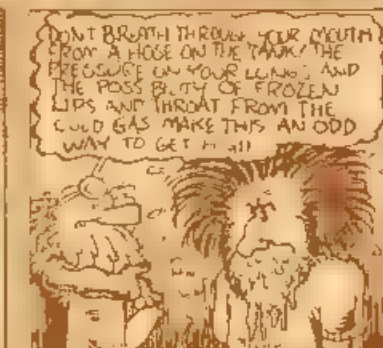 DONT BREATH THROUGH YOUR MOUTH
FROM A HOSE ON THE TANK! THE
PRESSURE ON YOUR LUNGS AND
THE POSSIBILTY OF FROZEN
LIPS AND THROAT FROM THE
COLD GAS MAKE THIS AN ODD
WAY TO GET